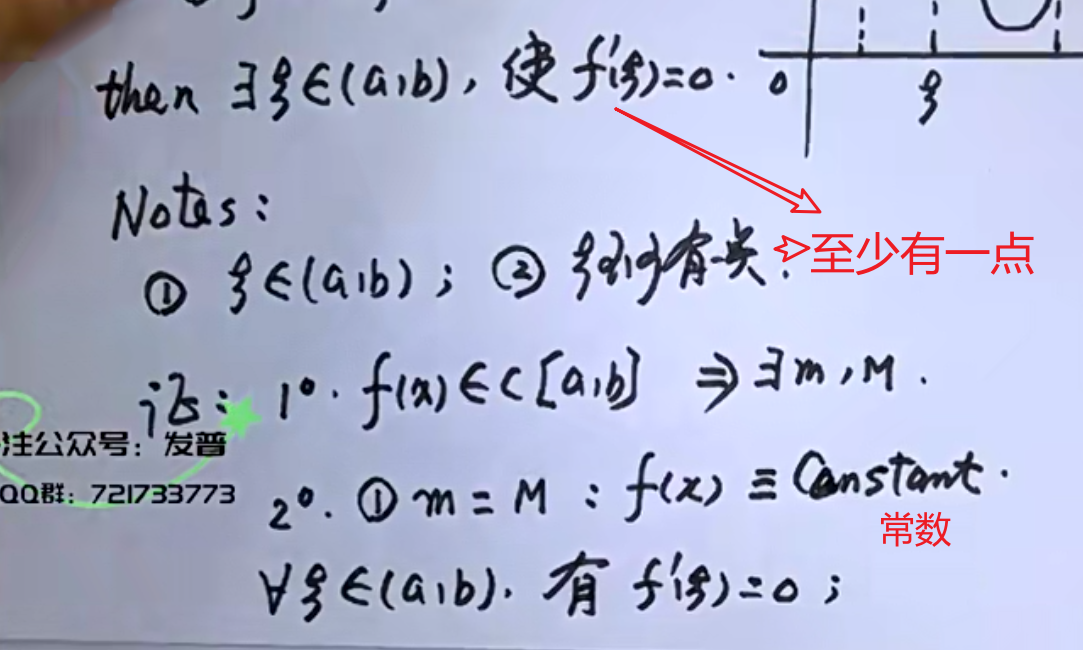 then ∃ξ∈(a,b), 使 f'(ξ)=0.
0 ξ
Notes:
① ξ∈(a,b); ② ξ 有一点. 至少有一点
证: 1°. f(x)∈C[a,b] ⇒ ∃m,M.
注公众号:发普
QQ群:721733773
2°. ① m=M : f(x)≡Constant.
常数
∀ξ∈(a,b). 有 f'(ξ)=0;